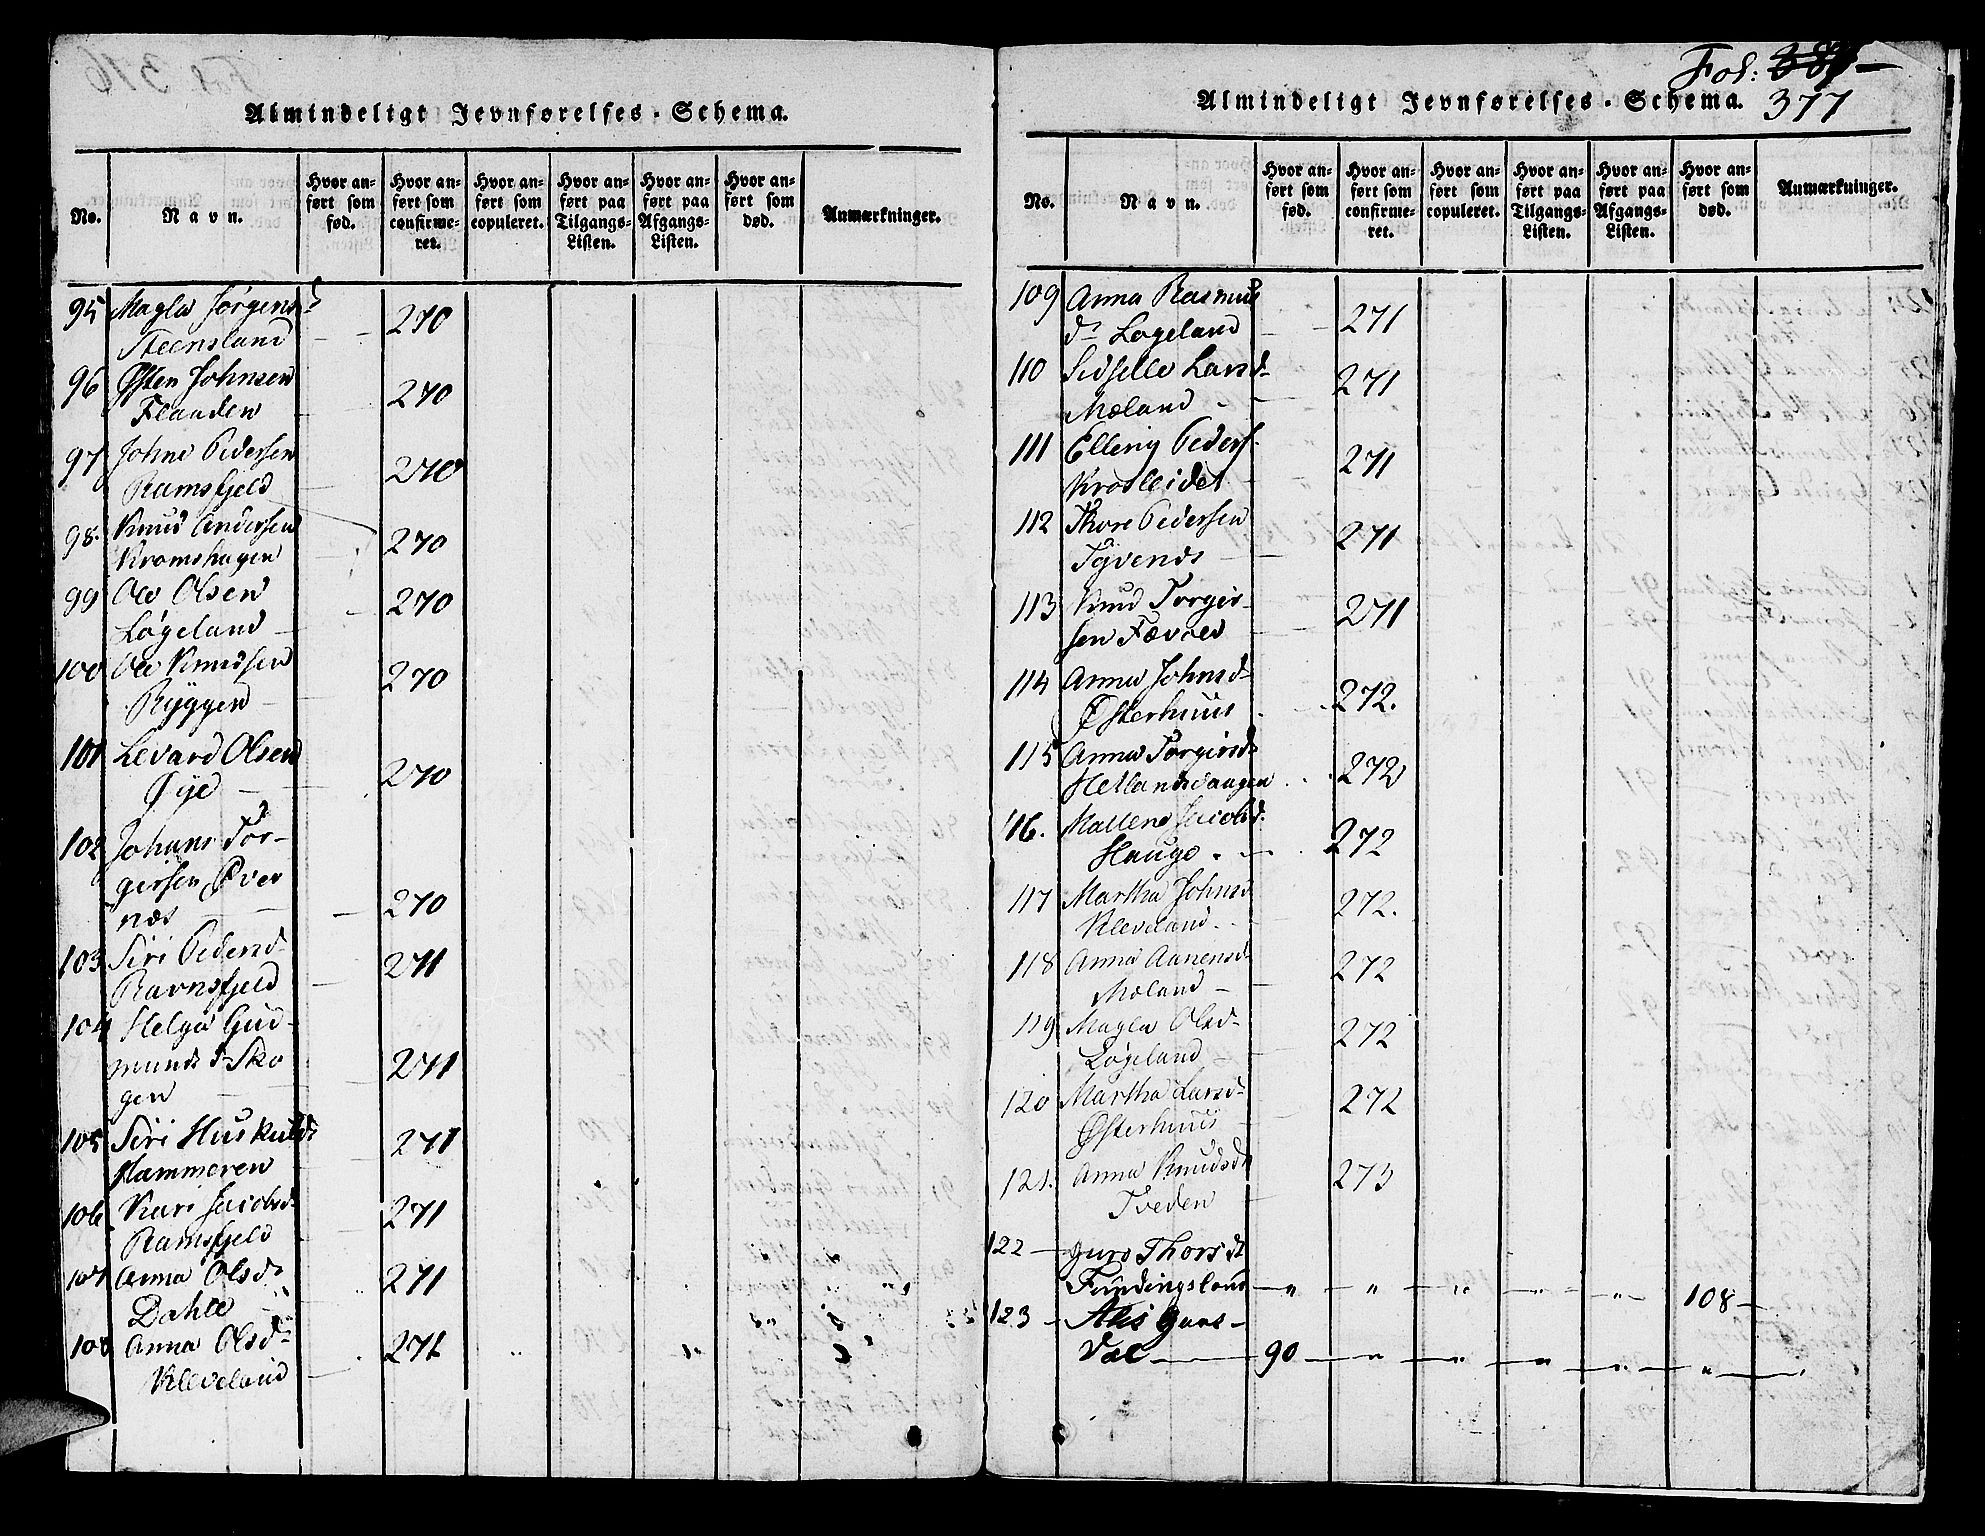 Almindeligt Jevnførelses-Schema.
No.
Navn.
Hvor anført som fød.
Hvor anført som confirmeret.
Hvor anført som copuleret.
Hvor anført paa Tilgangs-Listen.
Hvor anført paa Afgangs-Listen.
Hvor anført som død.
Anmærkninger.
95 Magla Jørgensd
Steensland 270
96 Østen Johnsen
Flaaden 270
97 Johne Pedersen
Ramsfjeld 270
98. Knud Andersen
Kromshagen 270
99 Ole Olsen
Løgeland 270
100 Ole Knudsen
Ryggen 270
101 Levard Olsen
Øye 270
102 Johans Tor-
gersen Øver
næs 270
103 Siri Pedersd
Ravnsfjeld 271
104 Helga Gud-
munds d Sko
gen 271
105 Siri Huskulds
Hammeren 271
106 Kari Jacobsd
Ramsfjeld 271
107 Anna Olsd
Dahle 271
108 Anna Olsd
Kleveland 271
Fol: 381
377
Almindeligt Jevnførelses-Schema.
No.
Navn.
Hvor anført som fød.
Hvor anført som confirmeret.
Hvor anført som copuleret.
Hvor anført paa Tilgangs-Listen.
Hvor anført paa Afgangs-Listen.
Hvor anført som død.
Anmærkninger.
109 Anna Rasmus
d Løgeland 271
110 Sidselle Larsd
Mæland 271
111 Elling Peders.
Krosleidet 271
112 Thore Pedersen
Tqvends 271
113 Knud Torger-
sen Fævold 271
114 Anna Johnsd
Østerhuus 272.
115 Anna Torgersd
Hetlandsvaagen 272
116. Mallene Jacobsd.
Hauge 272
117 Martha Johnsd
Kleveland 272.
118 Anna Aanensd
Mæland 272
119 Magla Olsd
Løgeland 272
120 Martha Larsd
Østerhuus 272
121. Anna Knudsd
Tveden 273
122 Guro Thorsd
Fundingsland — " — " — " — " — " — 108 —
123 Alis Guns-
dal — 90 — " — " — " — " — " —